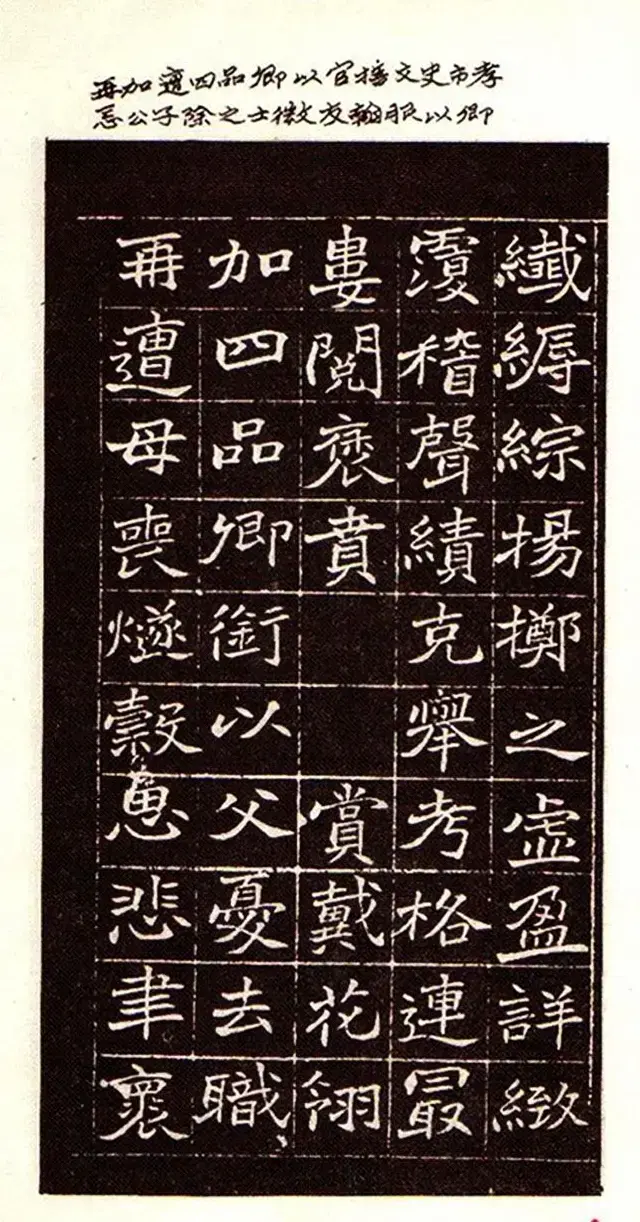 再加遭四品卿以官接文史市孝
公子除之士徵友翰服以卿
纖縟綜揚擲之虛盈詳緻
覆稽聲績克舉考格連最
婁閱褒賁賞戴花翎
加四品卿銜以父憂去職
再遭母喪燧穀悲聿褱